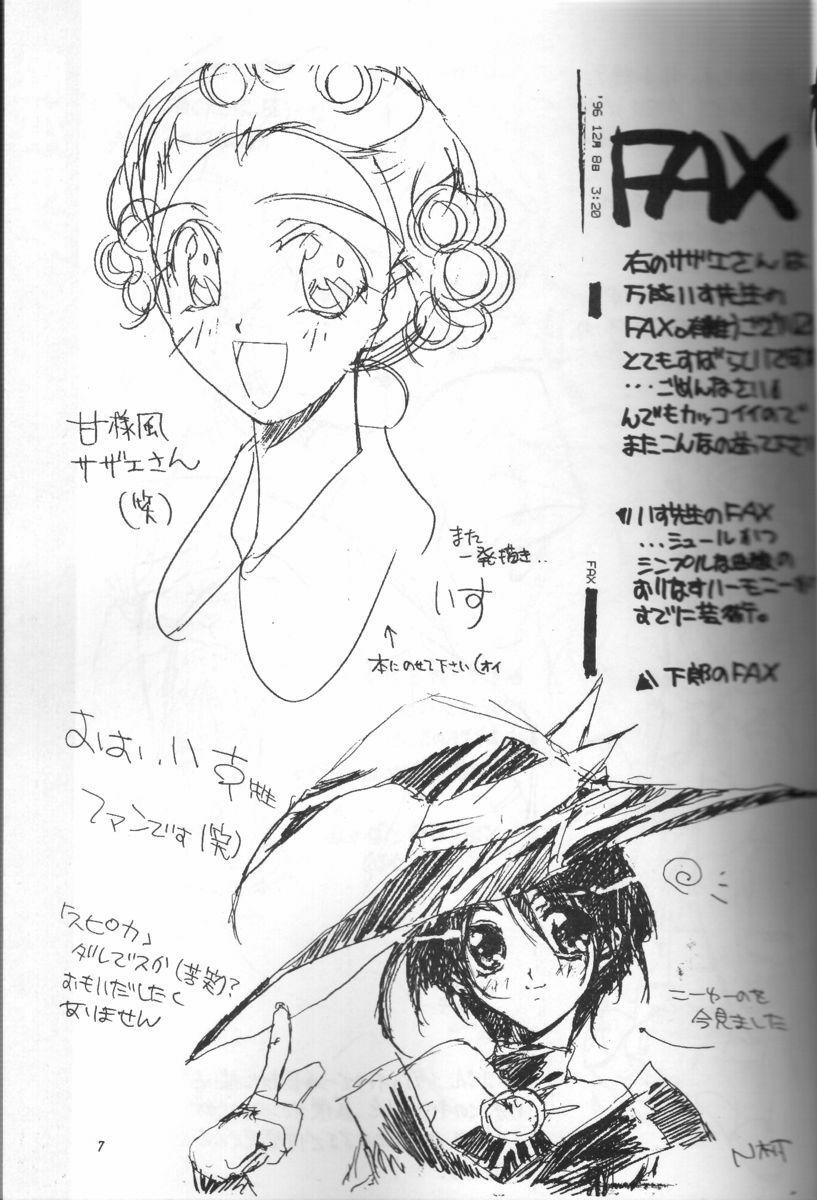 '96 12月 8日 3:20
FAX
右のサザエさんは
FAX。有難うございま
とてもすばらしいです
…ごめんなさい。
んでもカッコイイので
またこんなの送って下さ
いす先生のFAX
…ミュールかつ
シンプルな
おりなすハーモニーが
すでに芸術。
下郎のFAX
FAX
甘様風
サザエさん
(笑)
また
一発描き..
いす
↑
本にのせて下さい(オイ
おはい、いす先生
ファンです(笑)
「スピカ」
ダレですか(苦笑)?
おもいだしたく
ありません
こーゆーのを
今見ました
N村T
7